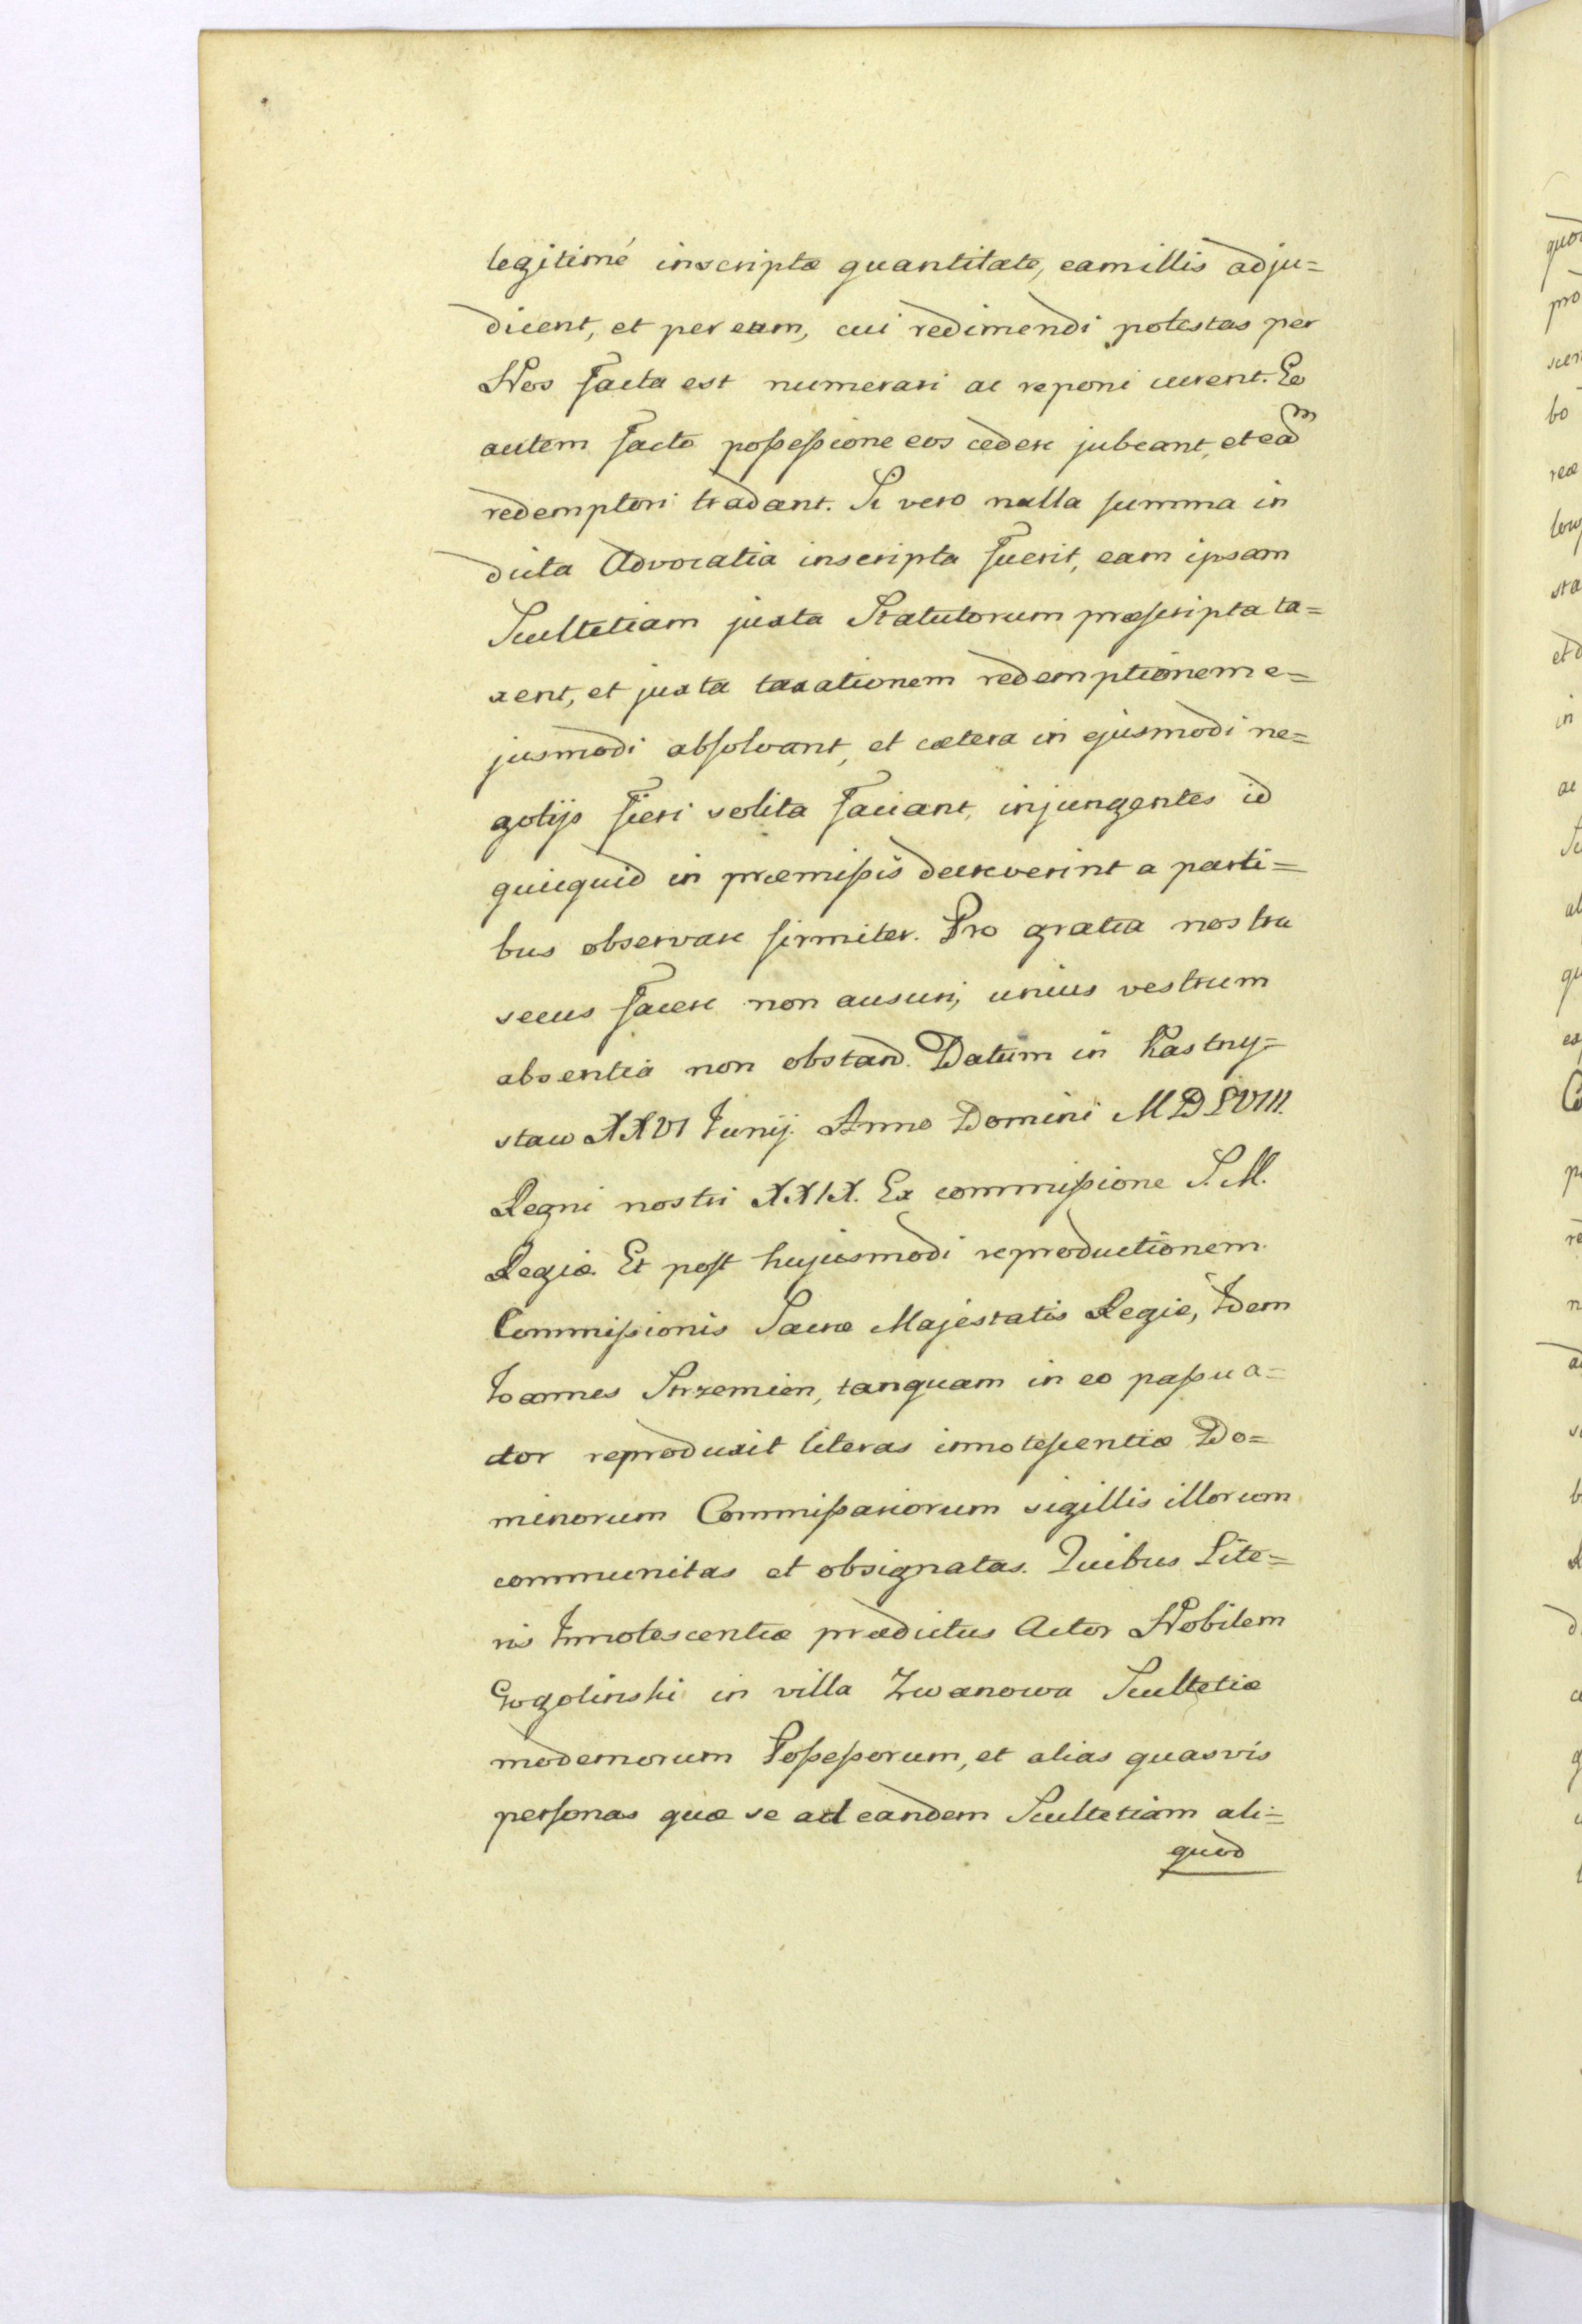 legitimé inscriptæ quantitate, eam illis adju=
dicent, et per eum, cui redimendi potestas per
Nos facta est numerari ac reponi curent. Eo
autem facto possessione eos cedere jubeant, et eadm
redemptori tradant. Si vero nulla summa in
dicta Advocatia inscripta fuerit, eam ipsam
Scultetiam juxta Statutorum præscripta ta=
xent, et juxta taxationem redemptionem e=
jusmodi absolvant, et cætera in ejusmodi ne=
gotijs fieri solita faciant, injungentes id
quicquid in præmissis decreverint a parti=
bus observare firmiter. Pro gratia nostra
secus facere non ausuri, unius vestrum
absentia non obstand. Datum in Kastny=
staw XXVI Junij. Anno Domini MDLVIII.
Regni nostri XXIX. Ex commissione S. M.
Regiæ. Et post hujusmodi reproductionem
Commissionis Sacræ Majestatis Regiæ, Idem
Joannes Strzemien, tanquam in eo passu a=
ctor reproduxit literas innotescentiæ Do=
minorum Commissariorum sigillis illorum
communitas et obsignatas. Quibus Lite=
ris Innotescentiæ prædictus Actor Nobilem
Gogolinski in villa Zwanowa Scultetiæ
modernorum Possessorum, et alias quasvis
personas quæ se ad eandem Scultetiam ali=
quod